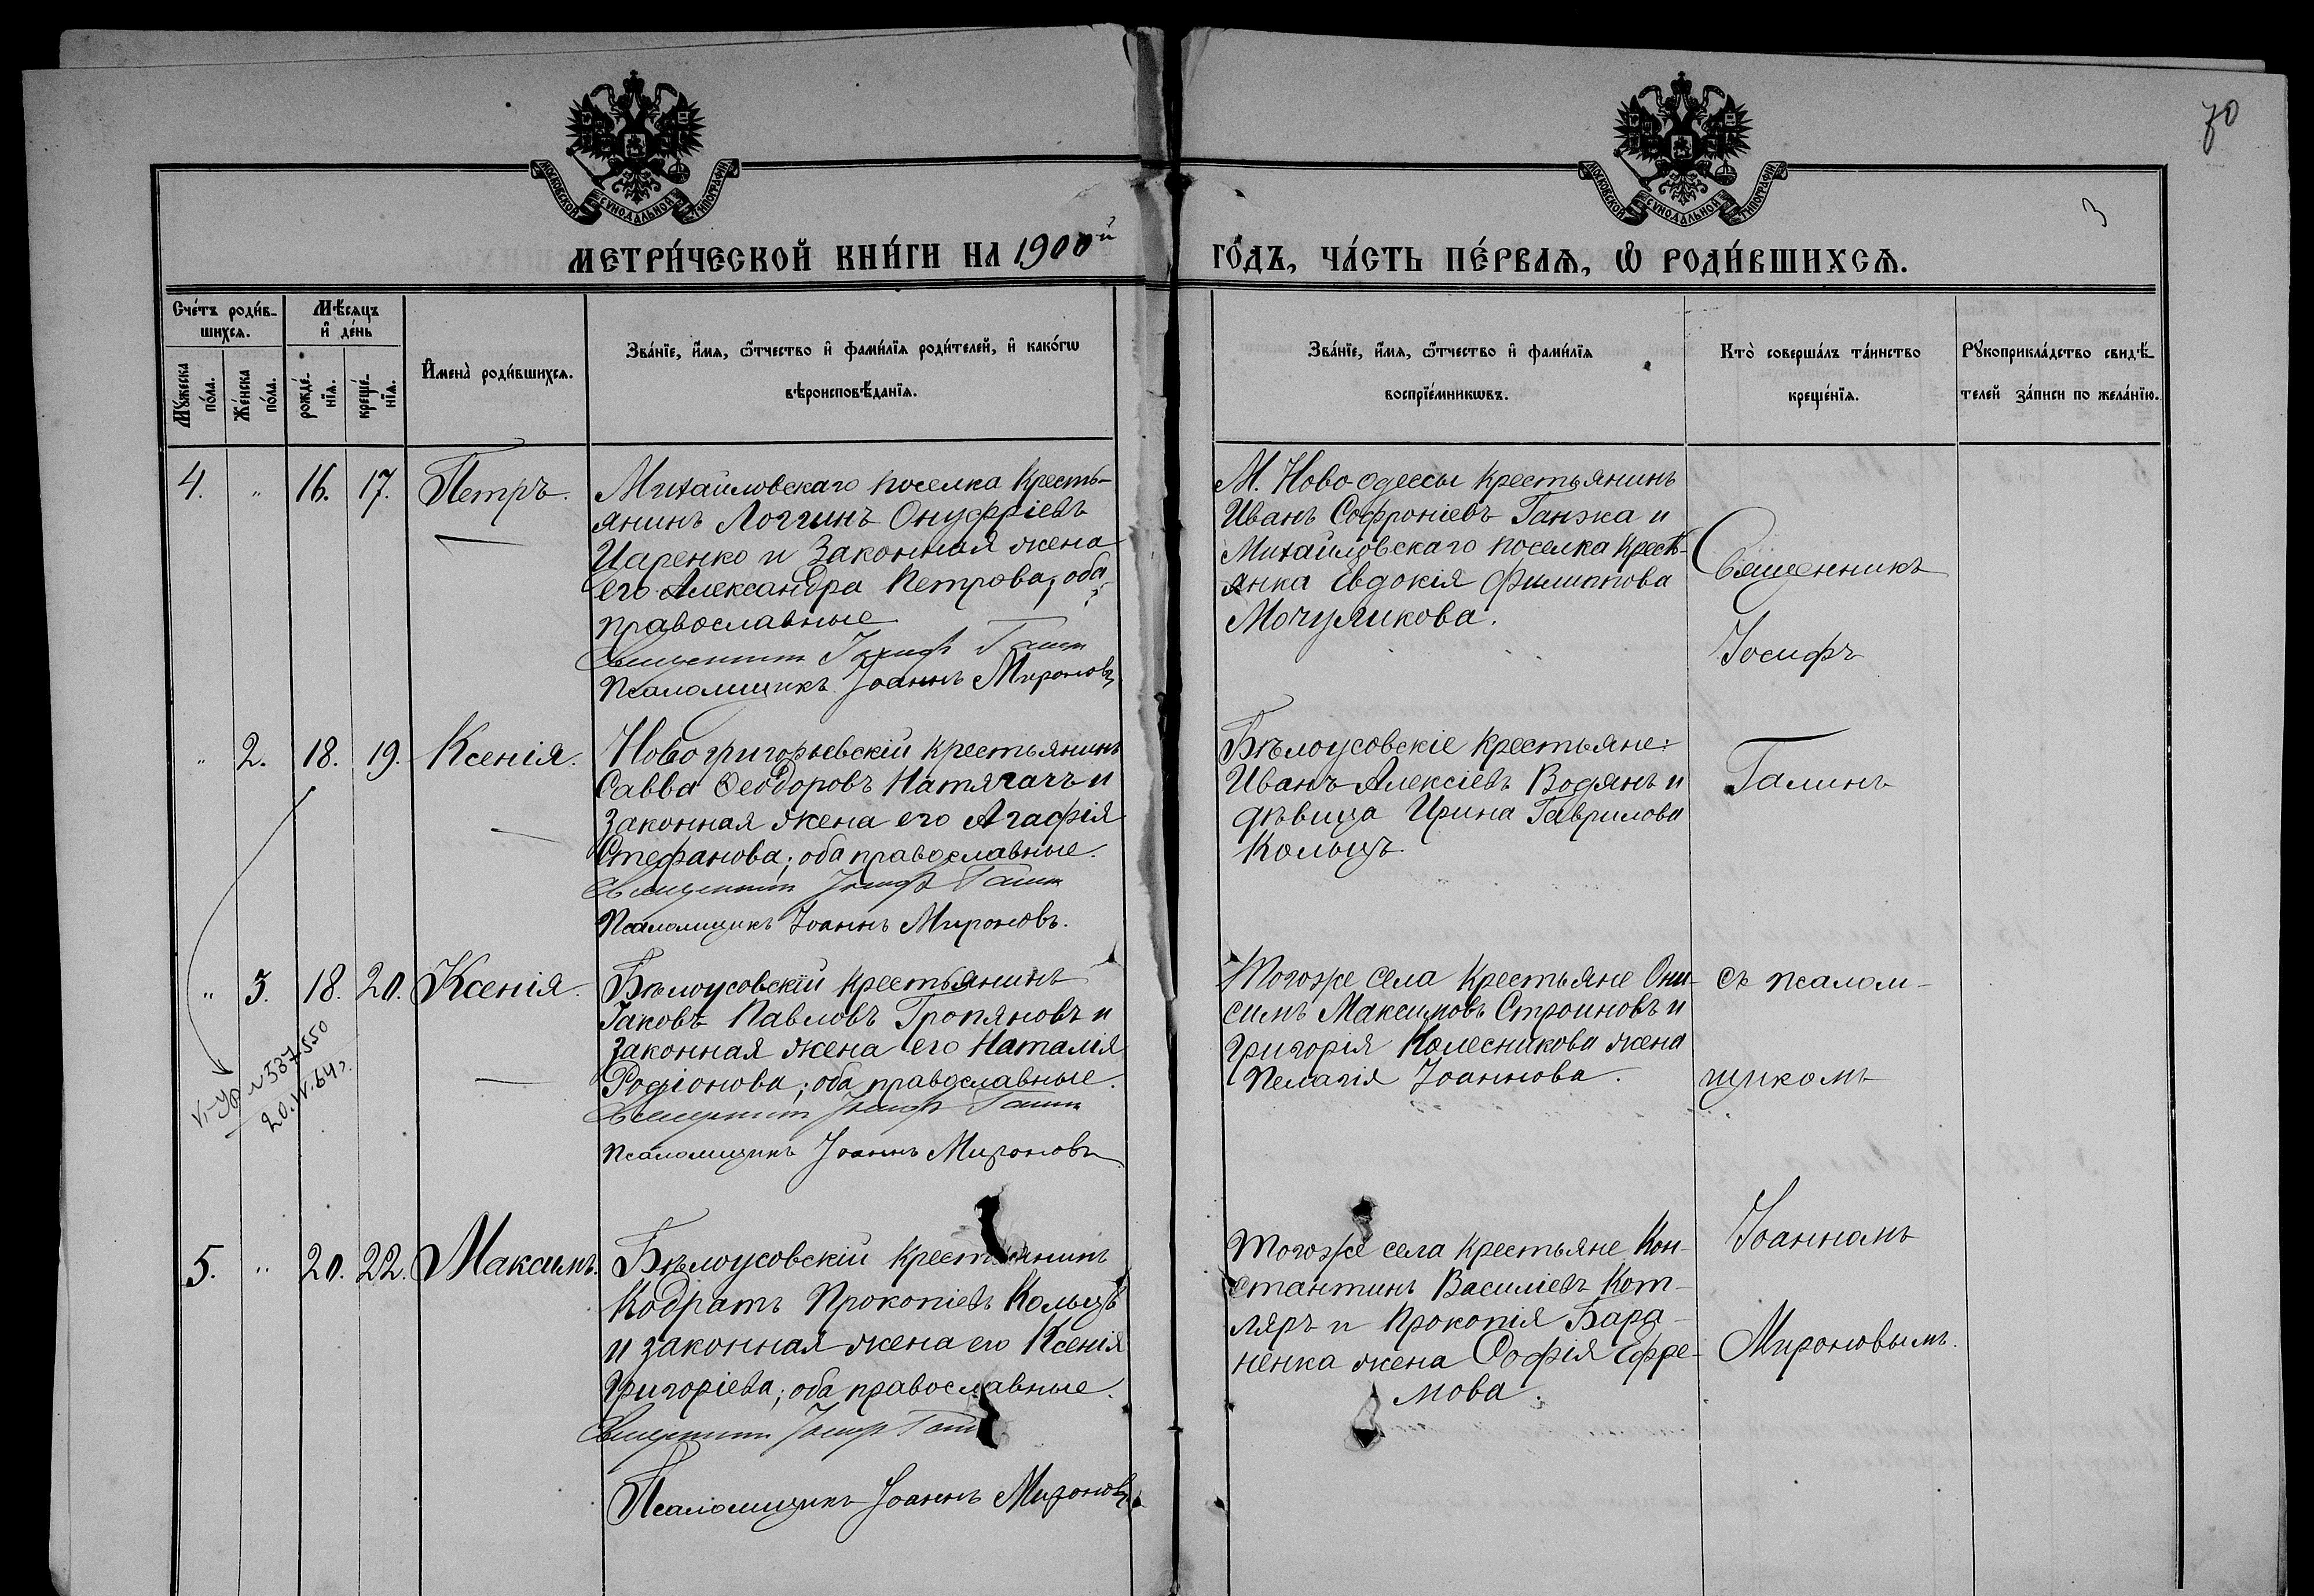 70
3
МОСКОВСКОЙ СѴНОДАЛЬНОЙ ТИПОГРАФІИ
МОСКОВСКОЙ СѴНОДАЛЬНОЙ ТИПОГРАФІИ
МЕТРИ́ЧЕСКОЙ КНИ́ГИ НА 1900й ГО́ДЪ, ЧА́СТЬ ПЕ́РВАЯ, Ѡ РОДИ́ВШИХСЯ.
Сче́тъ роди́в-
шихся.
Мѣ́сяцъ
и҆ де́нь
Мꙋ́жеска по́ла.
Же́нска по́ла.
рожде́-
нїя.
креще́-
нїя.
И҆мена̀ роди́вшихся.
Зва́нїе, и҆́мя, ѻ҆́тчество и҆ фами́лїя роди́телей, и҆ како́гѡ
вѣроисповѣ́данїя.
Зва́нїе, и҆́мя, ѻ҆́тчество и҆ фами́лїя
воспрїе́мникѡвъ.
Кто̀ соверша́лъ та́инство
креще́нїя.
Рꙋкоприкла́дство свидѣ́-
телей за́писи по жела́нїю.
4. " 16. 17. Петръ.
Михайловскаго поселка Кресть-
янинъ Логгинъ Онуфріевъ
Царенко и законная жена
его Александра Петрова, оба
православные
Священникъ Іосифъ Галинъ
Псаломщикъ Іоаннъ Мироновъ
М. Новоодессы крестьянинъ
Иванъ Софроніевъ Ганжа и
Михайловскаго поселка кресть-
янка Евдокія Филиппова
Мочуликова.
Священникъ
Іосифъ
" 2. 18. 19. Ксенія.
Новогригорьевскій крестьянинъ
Савва Ѳеодоровъ Натягачъ и
законная жена его Агафія
Стефанова; оба православные.
Священникъ Іосифъ Галинъ
Псаломщикъ Іоаннъ Мироновъ.
Бѣлоусовскіе крестьяне:
Иванъ Алексіевъ Водянъ и
дѣвица Ирина Гаврилова
Кольцъ.
Галинъ
" 3. 18. 20. Ксенія.
Бѣлоусовскій крестьянинъ
Іаковъ Павловъ Тропяновъ и
законная жена его Наталія
Родіонова; оба православные.
Священникъ Іосифъ Галинъ
Псаломщикъ Іоаннъ Мироновъ
Тогоже села крестьяне Они-
симъ Максимовъ Строиновъ и
Григорія Колесникова жена
Пелагія Іоаннова.
съ псалом-
щикомъ
587550
5. " 20. 22. Максимъ.
Бѣлоусовскій крестьянинъ
Кодратъ Прокопіевъ Кольцъ
и законная жена его Ксенія
Григоріева; оба православные.
Священникъ Іосифъ Галинъ
Псаломщикъ Іоаннъ Мироновъ
Тогоже села крестьяне Кон-
стантинъ Василіевъ Кот-
ляръ и Прокопія Бара-
ненка жена Софія Ефре-
мова.
Іоанномъ
Мироновымъ.